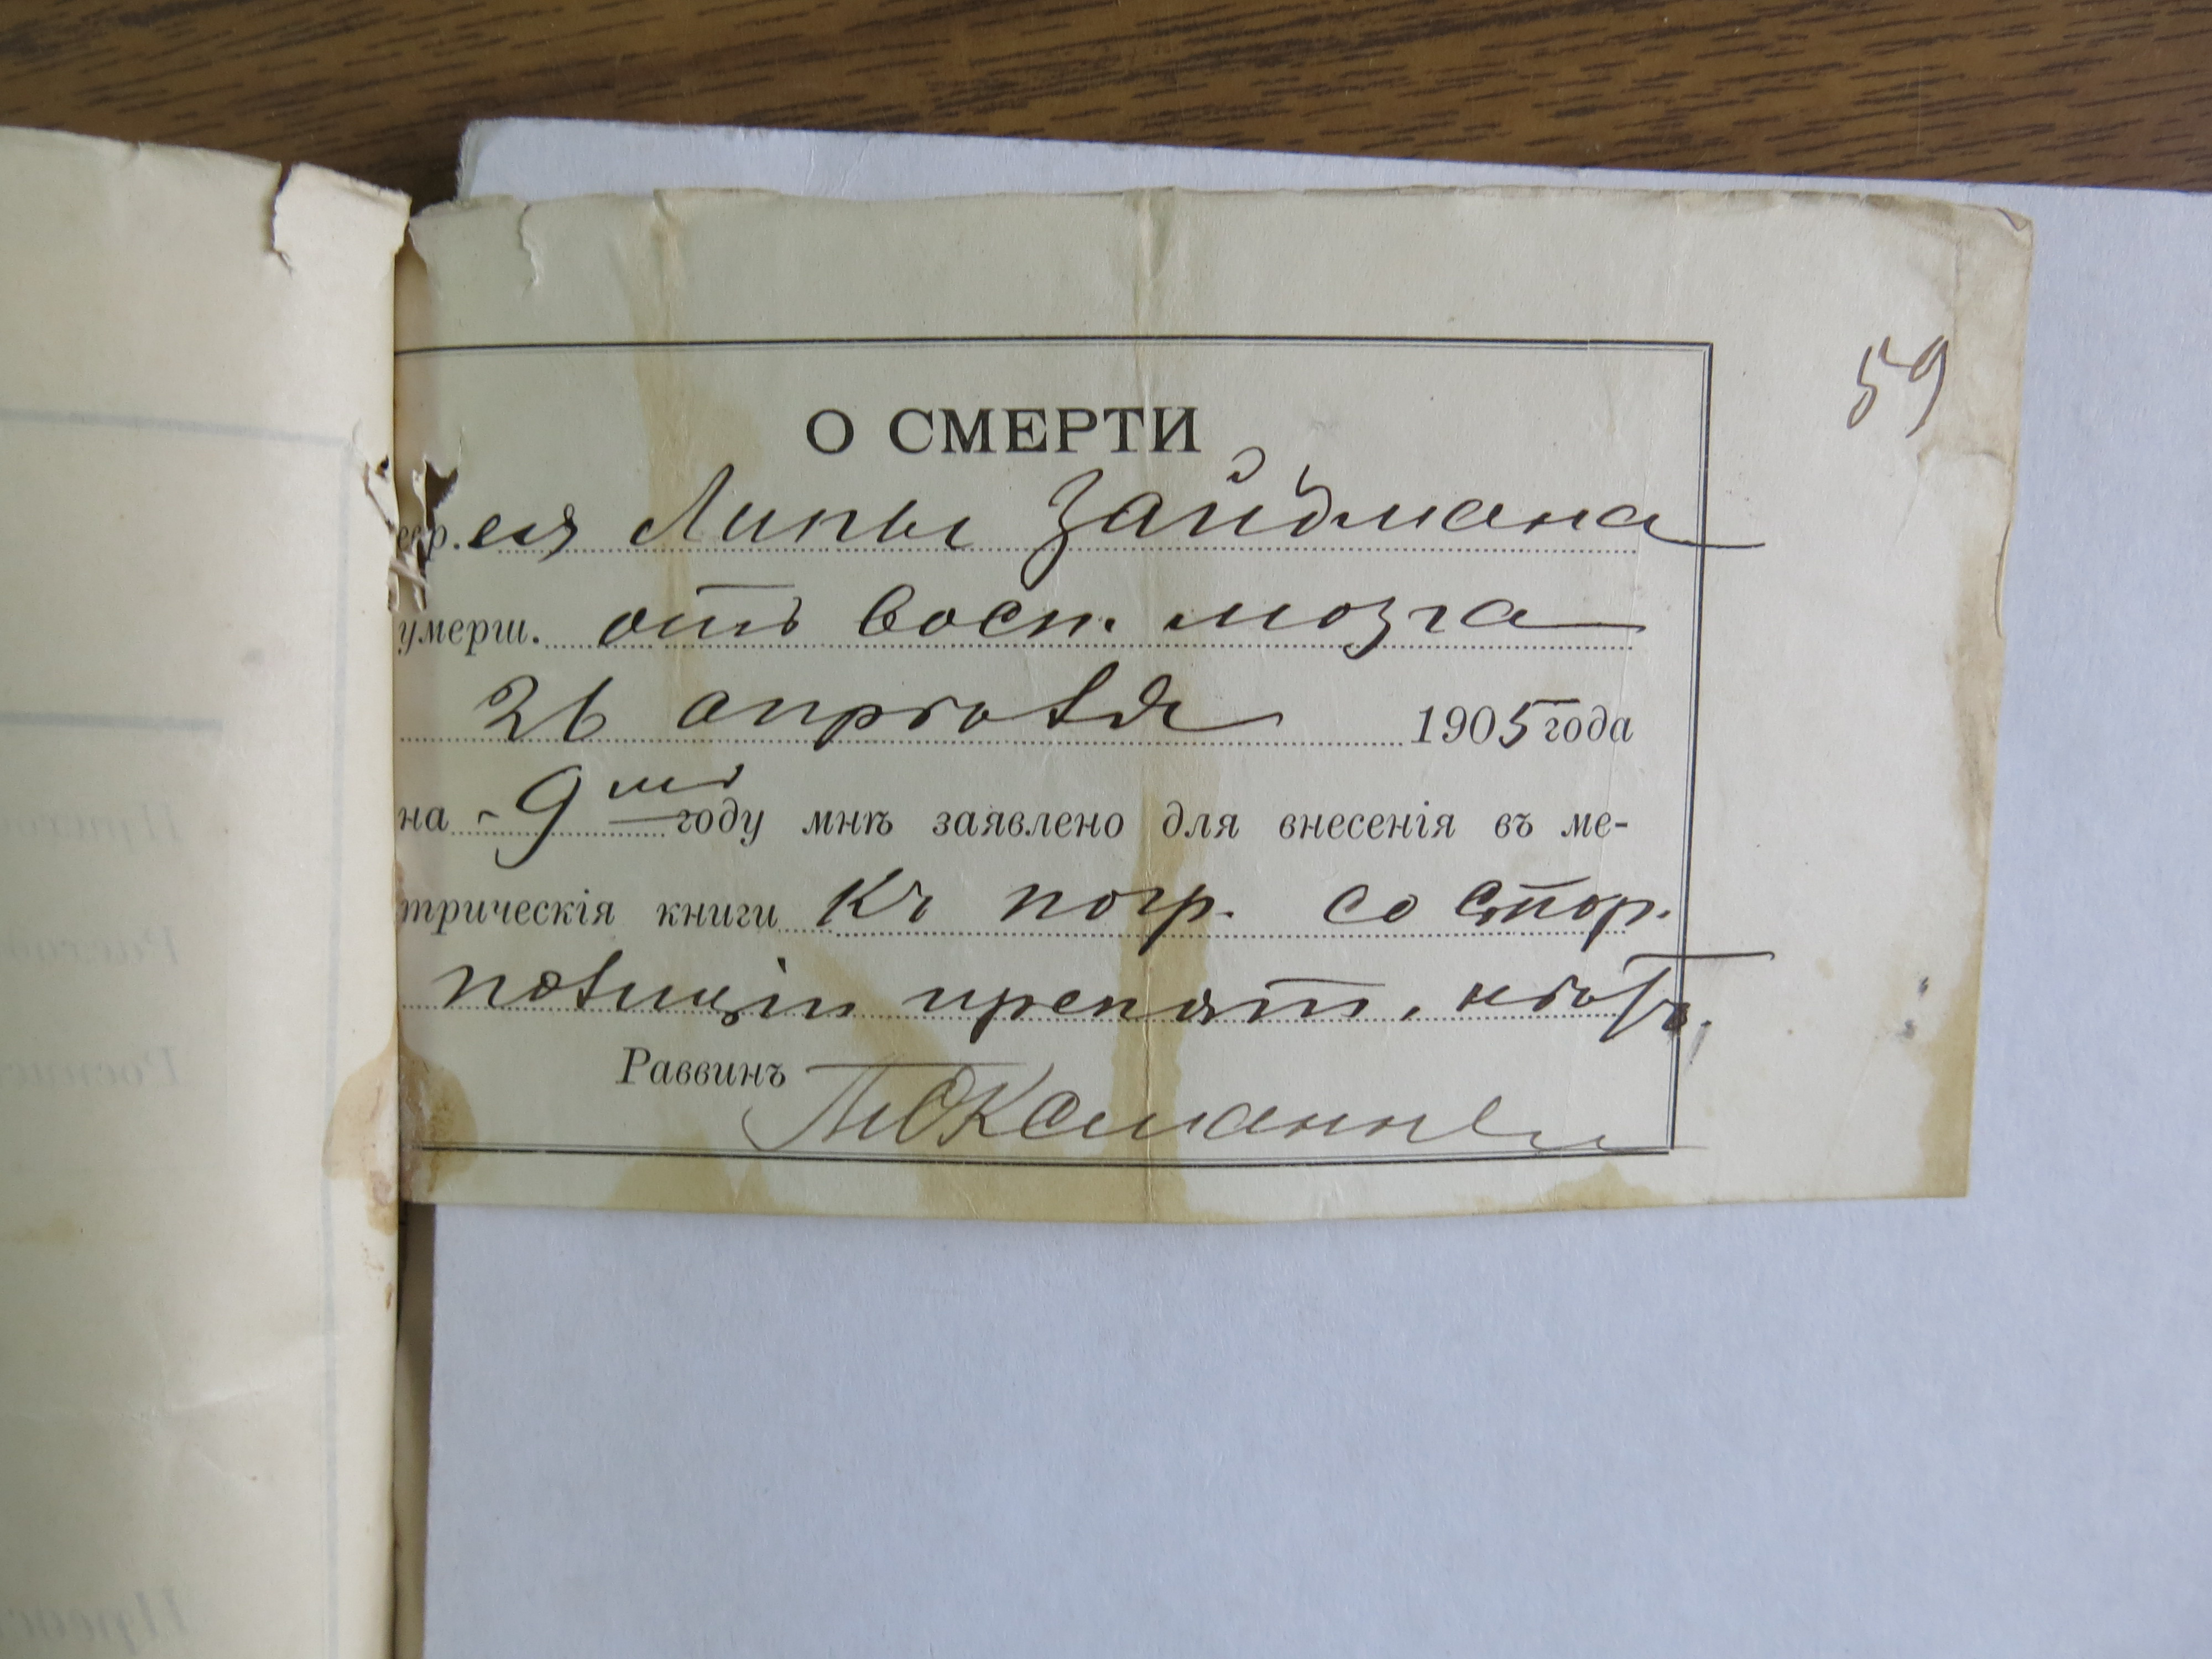 59
О СМЕРТИ
евр.ея Липы Зайдмана
умерш. отъ восп. мозга
26 апрѣля 1905 года
на 9мъ году мнѣ заявлено для внесенія въ ме-
трическія книги Къ погр. со стор.
полиціи препят. нѣтъ.
Раввинъ